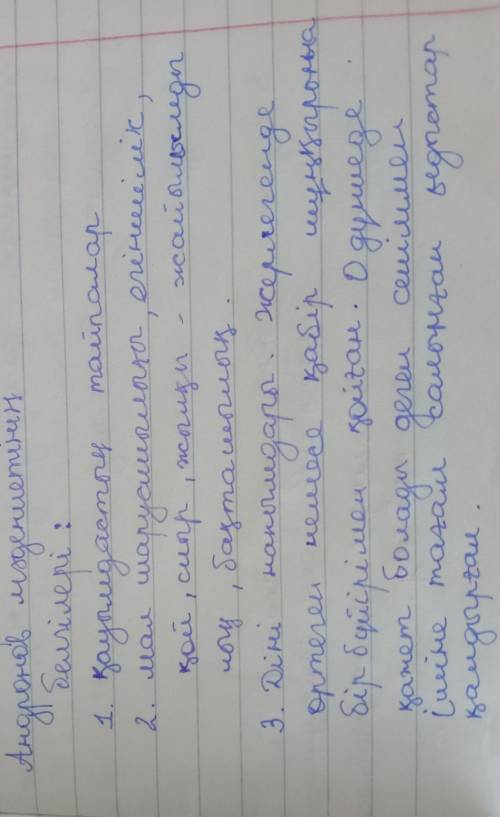 Андронов мәдениетінің
белгілері:
1. қауымдастық тайпалар
2. мал шаруашылығы, егіншілік,
қой, сиыр, жылқы - жайылымды
лық, бақташылық.
3. Діні нанымдары. Жерлегенде
өртеген немесе қабір шұңқырына
бір бүйірімен қойған. О дүниеде
қажет болады деген сеніммен
ішіне тағам салынған ыдыстар
қалдырған.